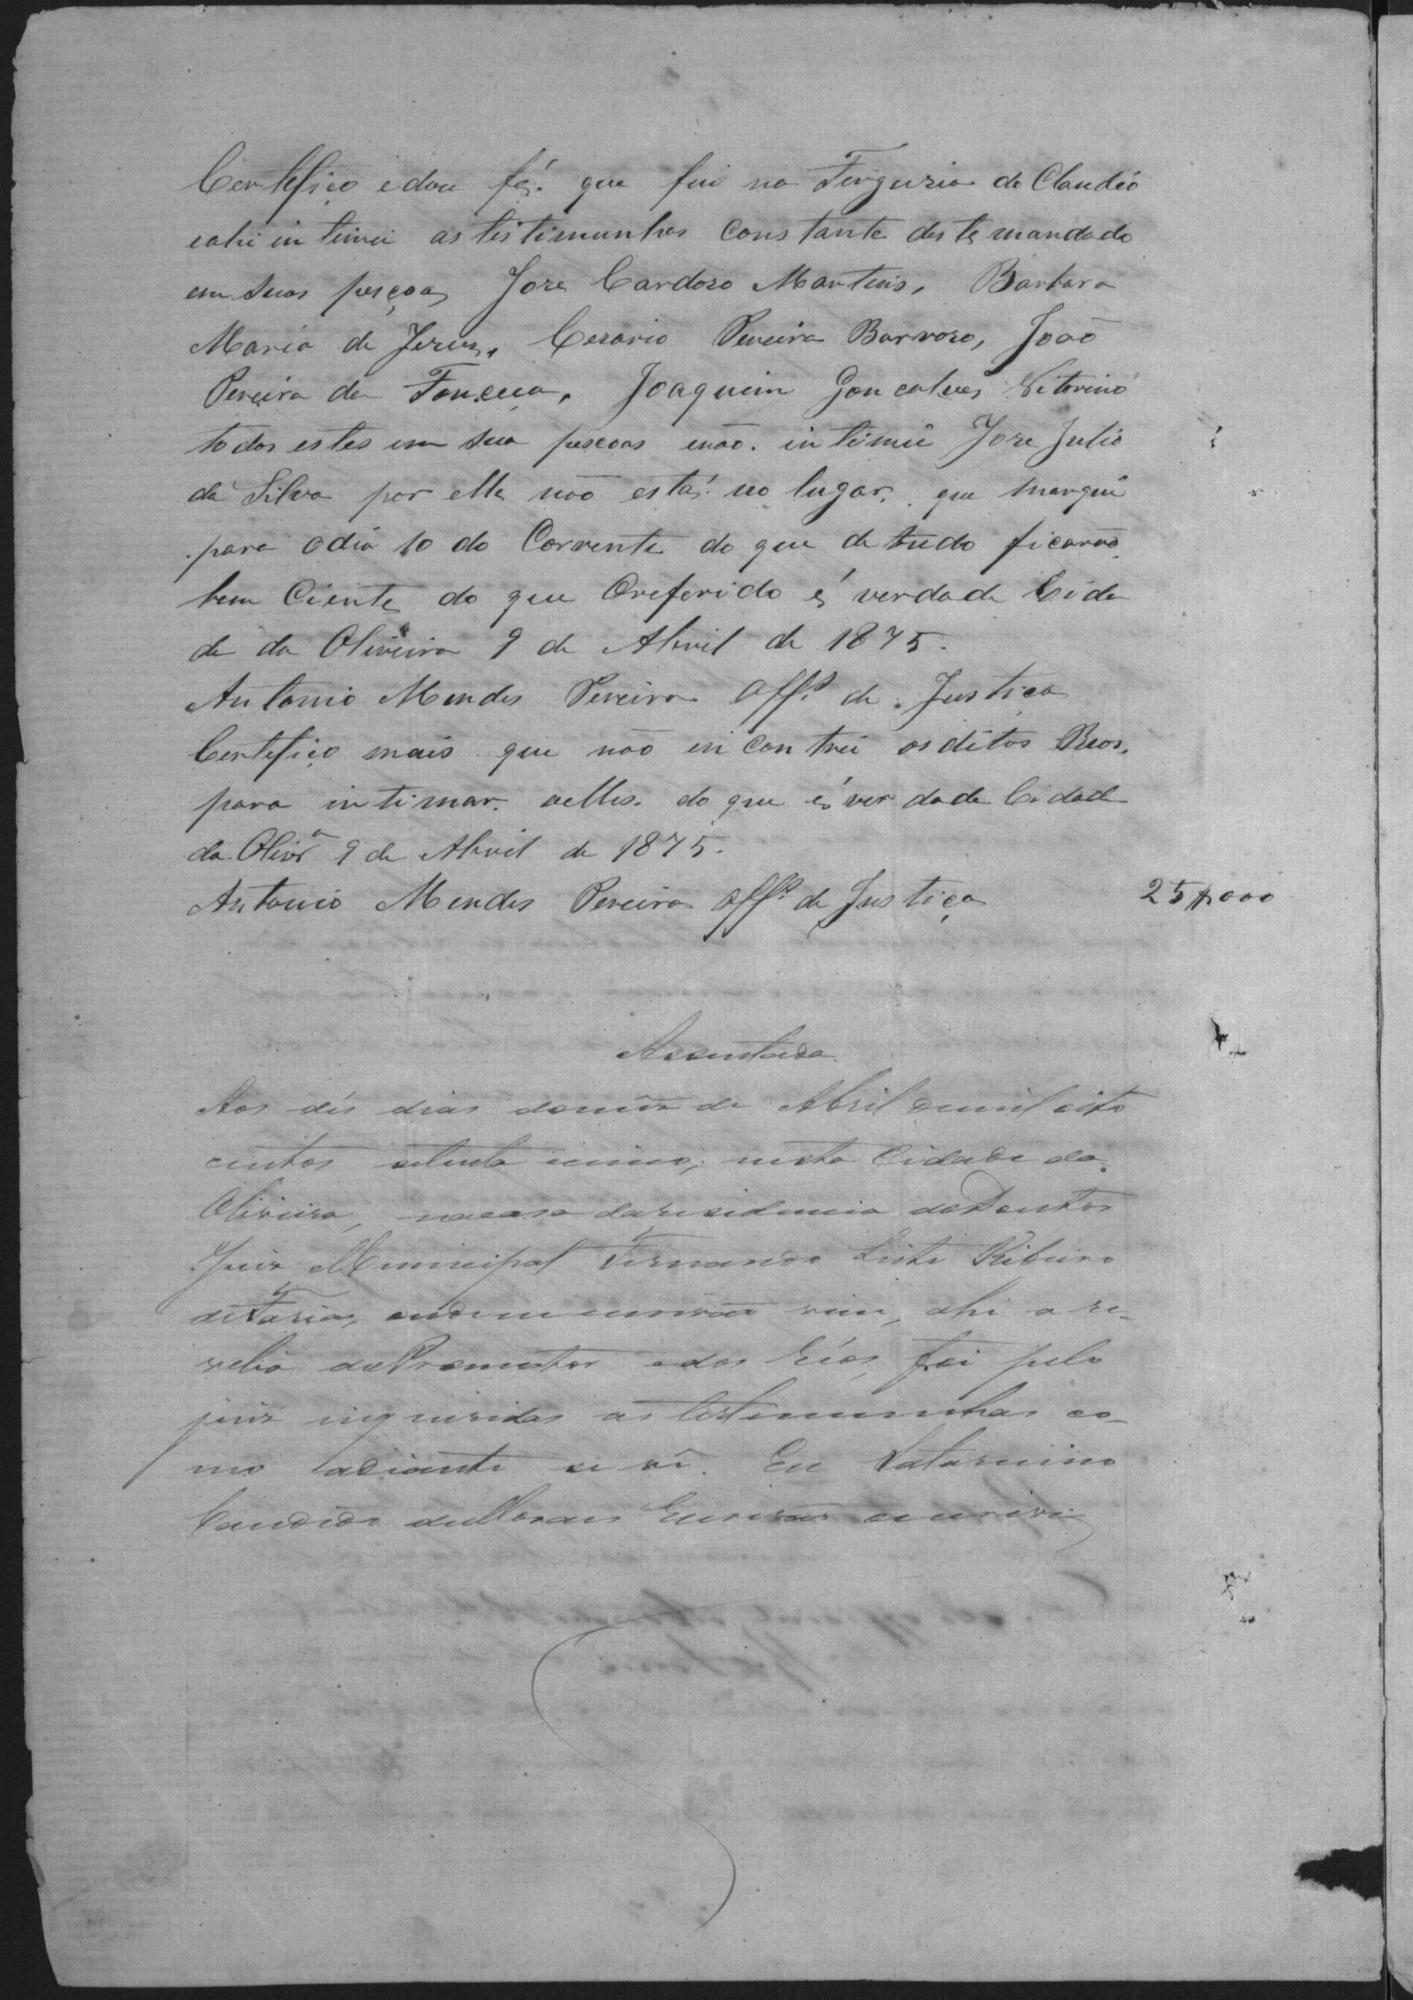 Certefiço e dou fé. que fui na Fergusia do Claudio
eahi in timei as tistimunhas Constante deste mandado
em suas peçoas Joze Cardozo Martins, Barbara
Maria de Jezus, Cezario Pereira Barrozo, João
Pereira da Fonceca, Joaquim Goncalves Vitorino
todos estes em sua pescoas enão. intimei Joze Julio
da Silva por elle não está no lugar. que marquei
para odia 10 do Corrente do que de tudo ficarão
bem Ciente do que Oreferido é verdade Cida
de da Oliveira 9 de Abril de 1875.
Antonio Mendes Pereira Offal de Justiça
Certefiço mais que não in contrei os ditos Reos.
para intimar. aelles. do que é ver dade Cidade
da Olivra 9 de Abril de 1875.
Antonio Mendes Pereira Offal de Justiça 25$000
Assentada
Aos dés dias domes de Abril demil oito
centos setenta e cinco, nesta Cidade da
Oliveira, nacasa daresidencia doDoutor
Juiz Municipal Fernando Leite Ribeiro
deFaria, onde eu escrivão vim, ahi a re-
velia doPromotor e dos Réos, foi pelo
juiz inqueridas as testimunhas co-
mo adiante se vê. Eu Saturnino
Candido deMorais Escrivão o escrivi